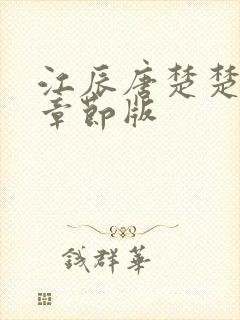 江辰唐楚楚
章節版
钱群華